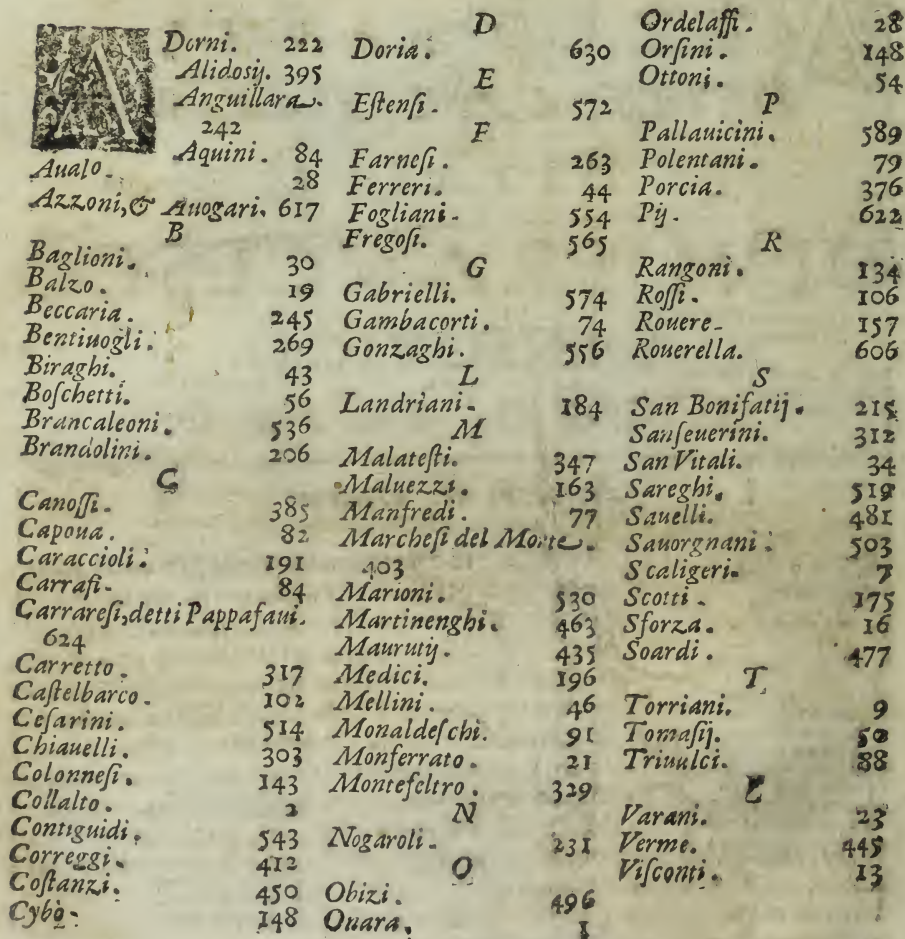 ADorni. 222
Alidosij. 395
Anguillara.
242
Aquini. 84
Aualo.
28
Azzoni, & Auogari. 617
B
Baglioni. 30
Balzo. 19
Beccaria. 245
Bentiuogli. 269
Biraghi. 43
Boſchetti. 56
Brancaleoni. 536
Brandolini. 206
C
Canoſſi. 385
Capoua. 82
Caraccioli. 191
Carrafi. 84
Carrareſi, detti Pappafaui.
624
Carretto. 317
Caſtelbarco. 102
Ceſarini. 514
Chiauelli. 303
Colonneſi. 143
Collalto. 2
Contiguidi. 543
Correggi. 412
Coſtanzi. 450
Cybò. 148
D
Doria. 630
E
Eſtenſi. 572
F
Farneſi. 263
Ferreri. 44
Fogliani. 554
Fregoſi. 565
G
Gabrielli. 574
Gambacorti. 74
Gonzaghi. 556
L
Landriani. 184
M
Malateſti. 347
Maluezzi. 163
Manfredi. 77
Marcheſi del Monte.
403
Marioni. 530
Martinenghi. 463
Maurutij. 435
Medici. 196
Mellini. 46
Monaldeſchi. 91
Monferrato. 21
Montefeltro. 329
N
Nogaroli. 231
O
Obizi. 496
Onara. 1
Ordelaffi. 28
Orſini. 148
Ottoni. 54
P
Pallauicini. 589
Polentani. 79
Porcia. 376
Pij. 622
R
Rangoni. 134
Roſſi. 106
Rouere. 157
Rouerella. 606
S
San Bonifatij. 215
Sanſeuerini. 312
San Vitali. 34
Sareghi. 519
Sauelli. 481
Sauorgnani. 503
Scaligeri. 7
Scotti. 175
Sforza. 16
Soardi. 477
T
Torriani. 9
Tomaſij. 50
Triuulci. 88
Varani. 23
Verme. 445
Viſconti. 13